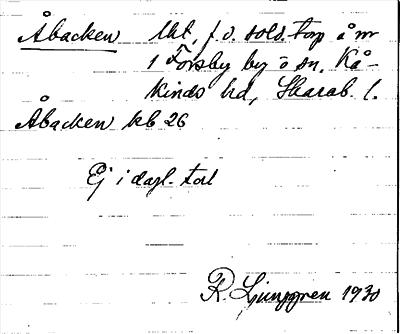 Åbacken lht, f.d. sold. torp å nr
1 Forsby by o sn, Kå-
kinds hd, Skarab. l.
Åbacken kb 26
Ej i dagl. tal
R. Ljunggren 1930